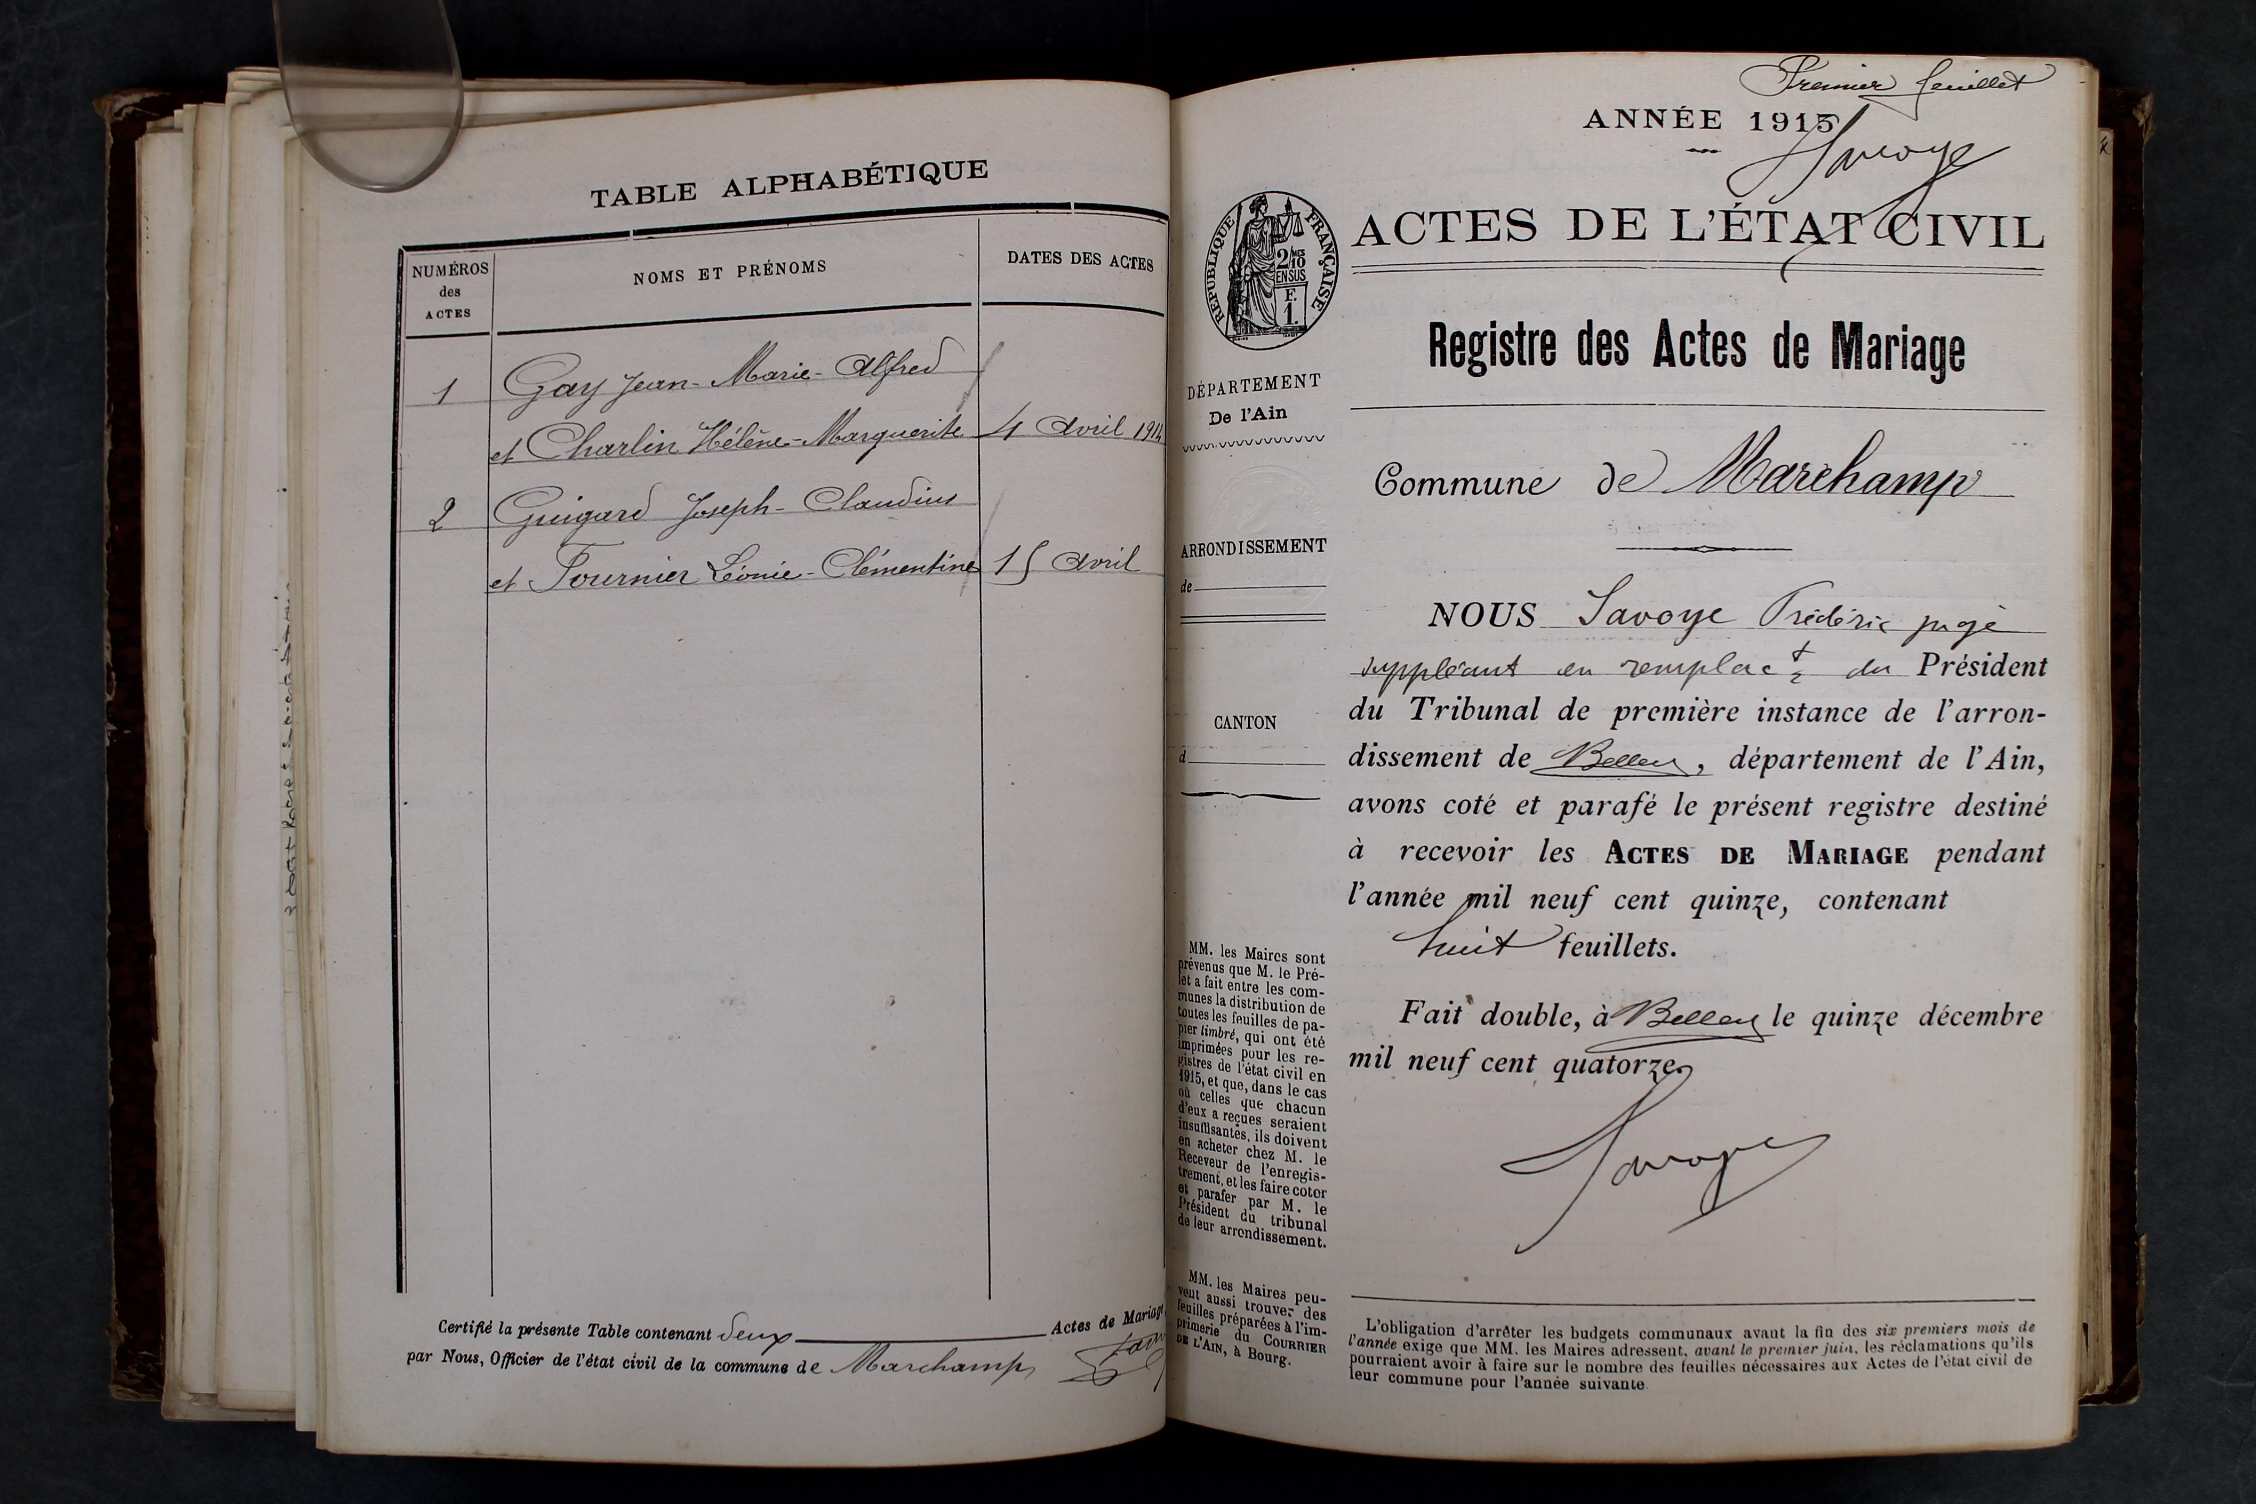 TABLE ALPHABÉTIQUE
NUMÉROS des ACTES
NOMS ET PRÉNOMS
DATES DES ACTES
1 Gay Jean-Marie-Alfred
et Charlin Hélène-Marguerite 4 Avril 1914
2 Guigard Joseph-Claudius
et Fournier Léonie-Clémentine 15 Avril
Certifié la présente Table contenant deux Actes de Mariage
par Nous, Officier de l'état civil de la commune de Marchamp
Premier feuillet
ANNÉE 1915
Savoye
RÉPUBLIQUE FRANÇAISE
2/10
EN SUS
F.
1.
ACTES DE L'ÉTAT CIVIL
Registre des Actes de Mariage
DÉPARTEMENT
De l'Ain
Commune de Marchamp
ARRONDISSEMENT
de
CANTON
d
NOUS Savoye Frédéric juge
suppléant en remplact du Président
du Tribunal de première instance de l'arron-
dissement de Belley, département de l'Ain,
avons coté et parafé le présent registre destiné
à recevoir les ACTES DE MARIAGE pendant
l'année mil neuf cent quinze, contenant
huit feuillets.
Fait double, à Belley le quinze décembre
mil neuf cent quatorze.
Savoye
MM. les Maires sont
prévenus que M. le Pré-
fet a fait entre les com-
munes la distribution de
toutes les feuilles de pa-
pier timbré, qui ont été
imprimées pour les re-
gistres de l'état civil en
1915, et que, dans le cas
où celles que chacun
d'eux a reçues seraient
insuffisantes, ils doivent
en acheter chez M. le
Receveur de l'enregis-
trement, et les faire coter
et parafer par M. le
Président du tribunal
de leur arrondissement.
MM. les Maires peu-
vent aussi trouver des
feuilles préparées à l'im-
primerie du COURRIER
DE L'AIN, à Bourg.
L'obligation d'arrêter les budgets communaux avant la fin des six premiers mois de
l'année exige que MM. les Maires adressent, avant le premier juin, les réclamations qu'ils
pourraient avoir à faire sur le nombre des feuilles nécessaires aux Actes de l'état civil de
leur commune pour l'année suivante.